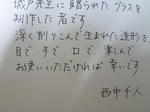 城戸先生に贈られたグラスを
制作した者です。
深く削りこんで生まれた造形を
目で、手で、口で、楽しんで
お使いいただければ幸いです
西中千人